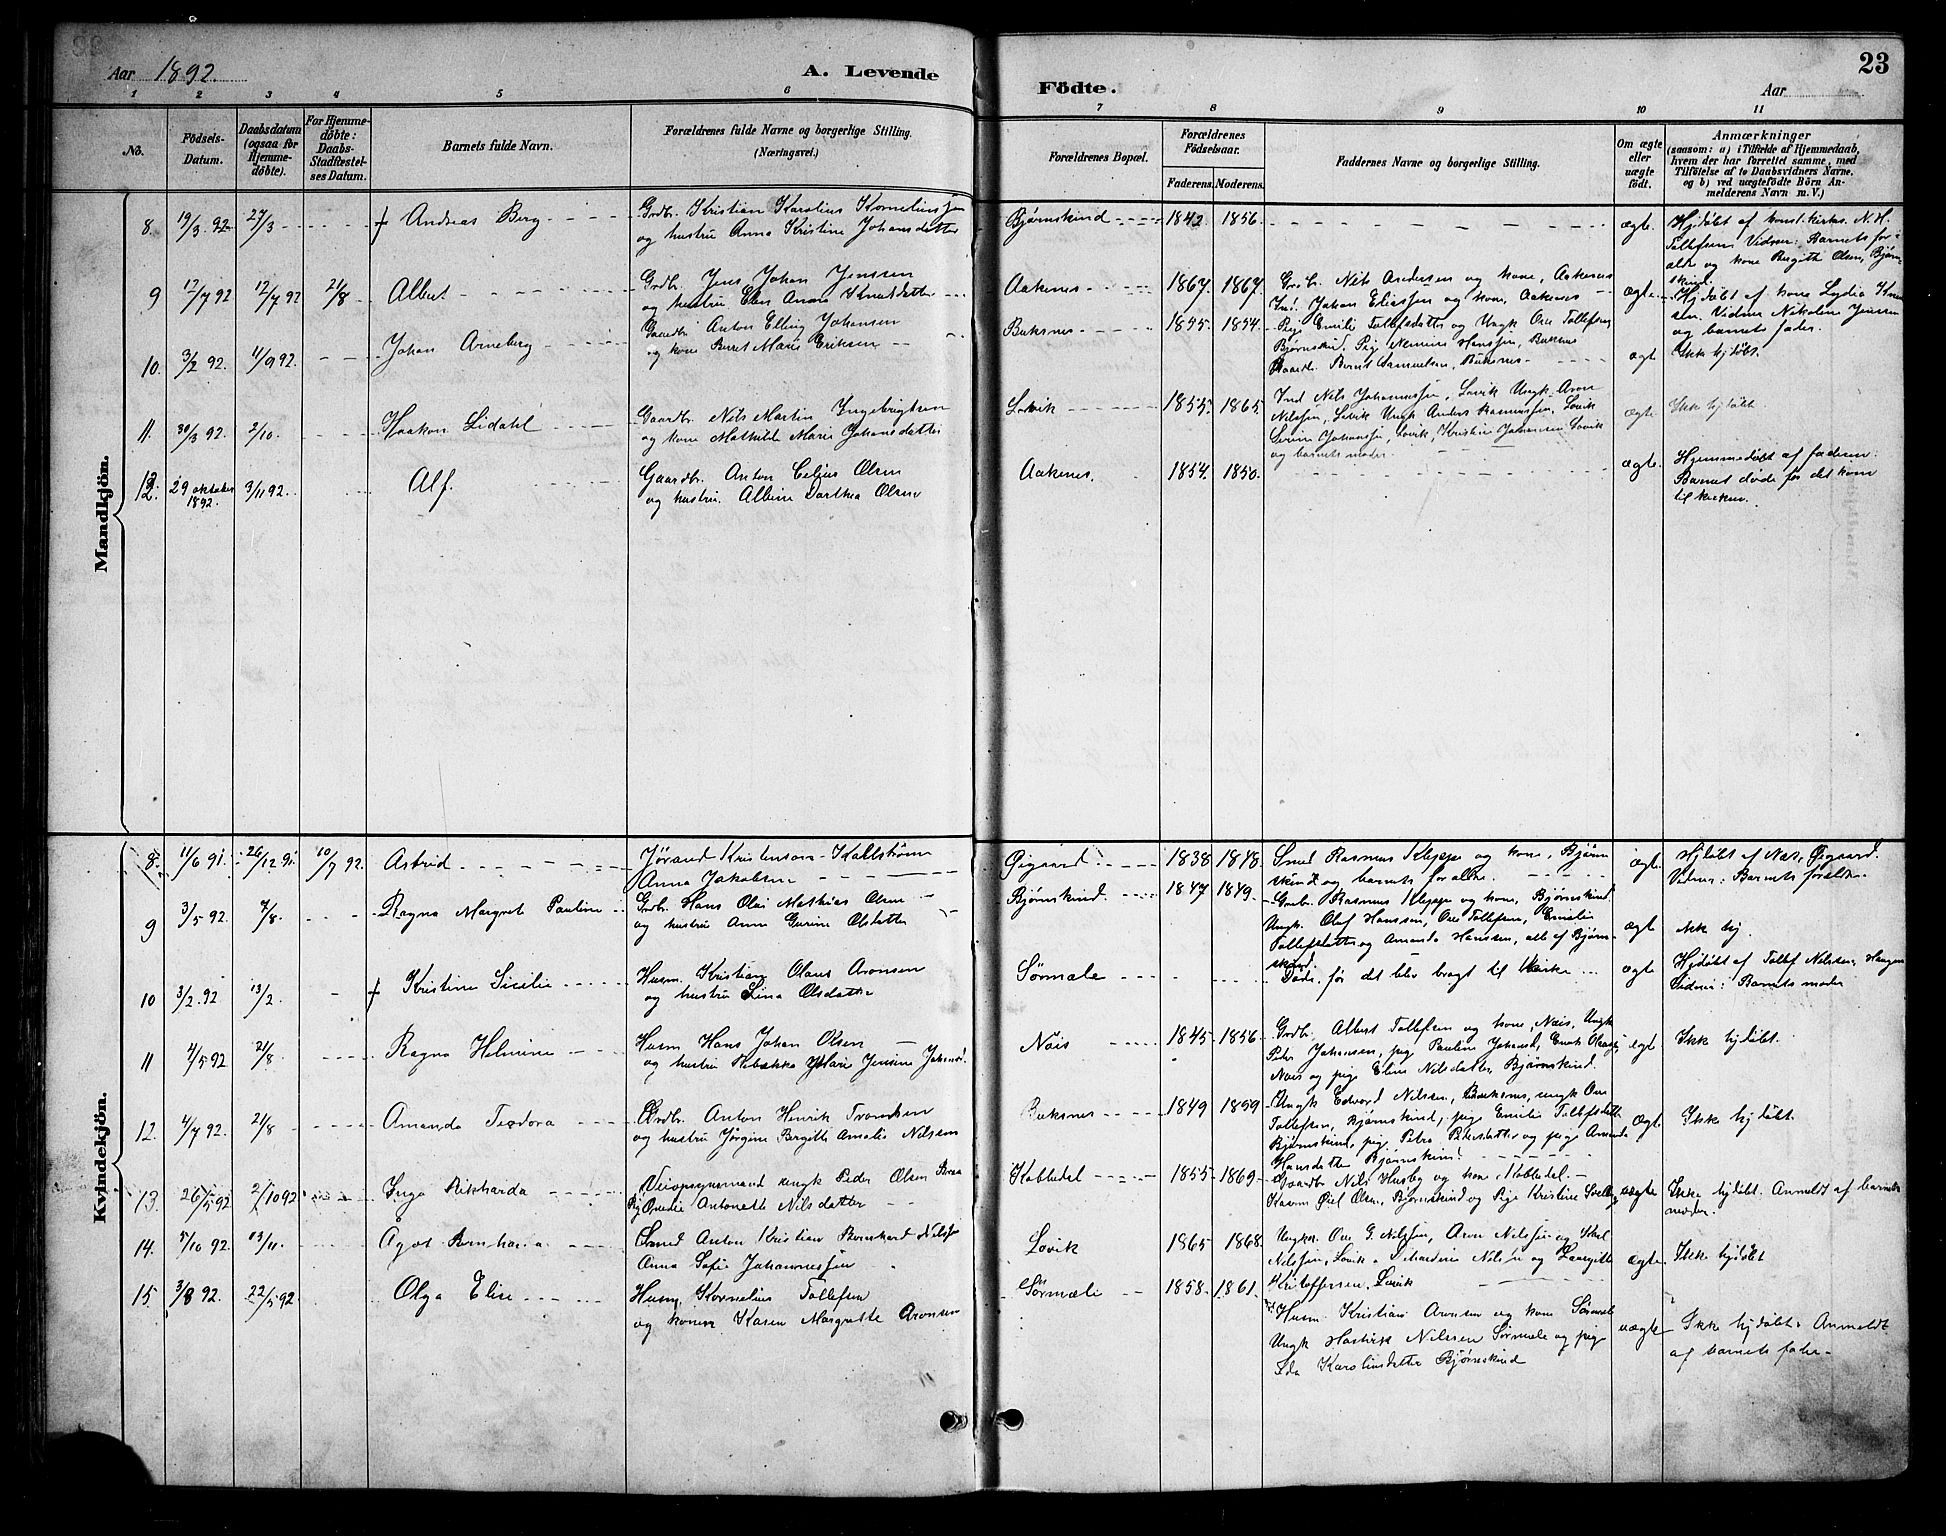 Aar 1892.
A. Levende
Födte.
Aar
23
1 2 3 4 5 6 7 8 9 10 11
No.
Födsels-Datum.
Daabsdatum (ogsaa for Hjemme-döbte).
For Hjemme-döbte: Daabs-Stadfæstel-ses Datum.
Barnets fulde Navn.
Forældrenes fulde Navne og borgerlige Stilling.
(Næringsvei.)
Forældrenes Bopæl.
Forældrenes Födselsaar.
Faderens. Moderens.
Faddernes Navne og borgerlige Stilling.
Om ægte eller uægte födt.
Anmærkninger
(saasom: a) i Tilfælde af Hjemmedaab, hvem der har forrettet samme, med Tilföielse af to Daabsvidners Navne, og b) ved uægtefödte Börn An-melderens Navn m. V.)
Mandkjön.
8. 19/3. 92 27/3 † Andreas Berg
Grdbr. Kristian Karolius Korneliussen
og hustru Anna Kristine Johansdatter
Bjørnskind 1842 1856. ægte.
Hjdøbt af konst. kirkes. N. H.
Tollefsen Vidner: Barnets for-
ældre og kone Bergitte Olsen, Bjørn-
skind.
9 12/7 92 12/7 92 21/8 Albert
Grdb. Jens Johan Jenssen
og hustru Anna Knutdatter
Aakenes 1867. 1867.
Grdb. Nils Andersen og kone, Aakenes
Ind. Johan Eliassen og kone, Aakenes
ægte.
Hjdøbt af kone Lydia
Vidner Nikoline Jenssen
og barnets fader.
10. 3/2 92. 4/9 92. Johan Arneberg
Gaardbr Anton Elling Johansen
og kone Berret Marie Eriksen
Buksnes 1845. 1854.
Pige Emilie Tollefsdatter og Ungk Ove Tollefsen
Bjørnskind. Pig Hanssen, Buksnes
Gaardb. Bernt Samuelsen, Buksnes
ægte Ikke hjdøbt.
11. 30/3 92. 2/10. Haakon Lidahl
Gaardbr Nils Martin Ingebrigtsen
og kone Mathilde Marie Johansdatter
Lovik 1855. 1865.
Ind Nils Johannessen, Lovik Ungk Aron
Nilssen, Lovik Ungk Anders Rasmussen, Lovik
Johanssen, Lovik, Kristine Johansen Lovik
og barnets moder.
ægte. Ikke hjdøbt
12. 29 oktober 1892. 3/11 92. Alf.
Gaardbr. Anton Olsen
og hustru. Albine Dorthea Olsen
Aakenes. 1854. 1850. ægte.
Hjemmedøbt af faderen:
Barnet døde før det kom
til kirken.
Kvindekjön.
8. 11/6 91. 26/12 91. 10/7 92. Astrid
Kristensen Kallstrøm
Anna Jakobsen
Øigaard 1838 1848
Smed Rasmus Kleppe og kone, Bjørn
skind og barnets forældre.
ægte.
Hjdøbt af Øigaard.
Vidner: Barnets forældre.
9 3/5 92. 7/8 Ragna Margret Pauline
Grdbr. Hans Olai Mathias Olsen
og hustru Anne Gurine Olsdatter
Bjørnskind. 1847 1849.
Grdb. Rasmus Kleppe og kone, Bjørnskind.
Ungk. Oluf Hanssen, Ove Tollefsen, Emilie
Tollefsdatter og Amanda Hanssen, alle af Bjørn-
skind.
ægte Ikke hj.
10 3/2. 92 13/2 † Kristine Sicilie
Husm. Kristian Olaus Aronsen
og hustru Lina Olsdatter
Sørmæle
Døde før det blev bragt til kirke
ægte
Hjdøbt af Tollef Nilsen, Haugen
Vidner: Barnets moder
11 4/5 92 21/8 Ragna Helmine
Husm. Hans Johan Olsen
og hustru Rebekka Marie Jensine Johansd.
Nøis 1845 1856
Grdbr. Albert Tollefsen og kone, Nøis, Ungk
Peter Johansen, pig Pauline Johansd,
Nøis og pige Eline Nilsdatter, Bjørnskind.
ægte Ikke hjdøbt.
12. 4/7 92. 21/8 Amanda Teodora
Grdbr. Anton Henrik Trondsen
og hustru Jørgine Bergitte Amalie Nilsson
Buksnes 1849 1859
Ungk Edvard Nilssen, Buksnes, ungk Ove
Tollefsen, Bjørnskind, pige Emilie Tollefsdatter
Bjørnskind, pig. Petra Petersdatter og pige Amanda
Hansdatter Bjørnskind.
ægte Ikke hjdøbt
13. 26/5 92 2/10 92 Inga Rikharda
Veiopsynsmand ungk Peder Olsen
Antonette Nilsdatter
Kobbedal 1855 1869
Gaardbr Nils Husby og kone, Kobbedal
Olsen, Bjørnskind og Pige Kristine
uægte
Ikke hjdøbt. Anmeldt af barnets
moder.
14. 5/10 92. 13/11. Ågot Bernharda
Smed Anton Kristian Bernhard Nilssen
Anna Sofie Johannessen
Lovik 1865 1868
Ungkr. Ove G. Nilssen, Aron Nilssen og
Nilssen, Lovik.
Kristoffersen. Lovik
ægte. Ikke hjdøbt
15. 3/8 92. 22/5 92 Olga Elise
Husm. Kornelius Tollefsen
og konen Karen Margrette Aronsen
Sørmæle 1858. 1861.
Husm. Kristian Aronsen og kone Sørmæle
Ungk Nilssen Sørmæle og pige
Ida Karolinedatter Bjørnskind
uægte
Ikke hjdøbt. Anmeldt
af barnets fader.